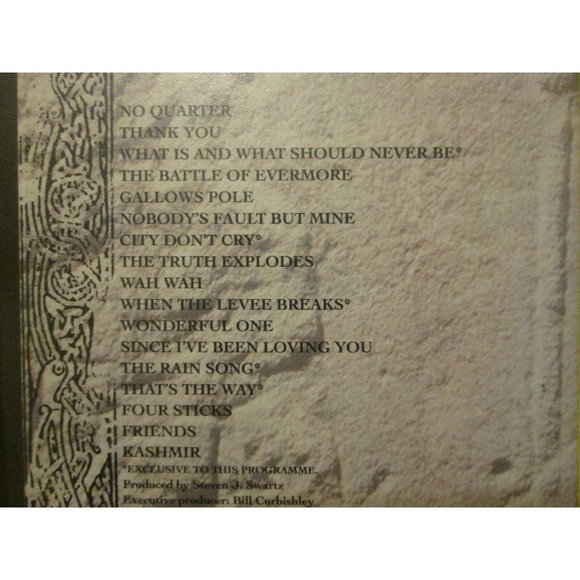 NO QUARTER
THANK YOU
WHAT IS AND WHAT SHOULD NEVER BE*
THE BATTLE OF EVERMORE
GALLOWS POLE
NOBODY'S FAULT BUT MINE
CITY DON'T CRY*
THE TRUTH EXPLODES
WAH WAH
WHEN THE LEVEE BREAKS*
WONDERFUL ONE
SINCE I'VE BEEN LOVING YOU
THE RAIN SONG*
THAT'S THE WAY*
FOUR STICKS
FRIENDS
KASHMIR
*EXCLUSIVE TO THIS PROGRAMME.
Produced by Steven J. Swartz
Executive producer: Bill Curbishley